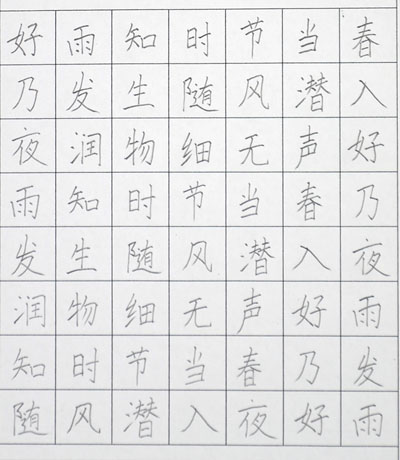 好雨知时节当春
乃发生随风潜入
夜润物细无声好
雨知时节当春乃
发生随风潜入夜
润物细无声好雨
知时节当春乃发
随风潜入夜好雨